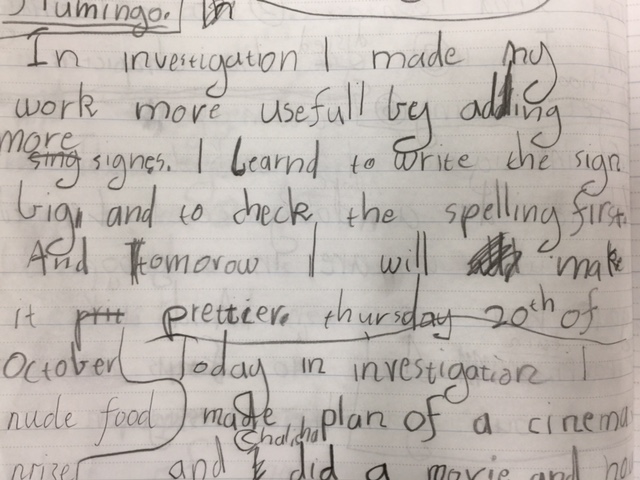 flumingo.
In investigation I made my
work more usefull by adding
more
signes. I learnd to write the sign
big, and to check, the spelling first.
And tomorow I will make
it prettier. thursday 20th of
October Today in investigation I
nude food made plan of a cinema
prizes and I did a movie and